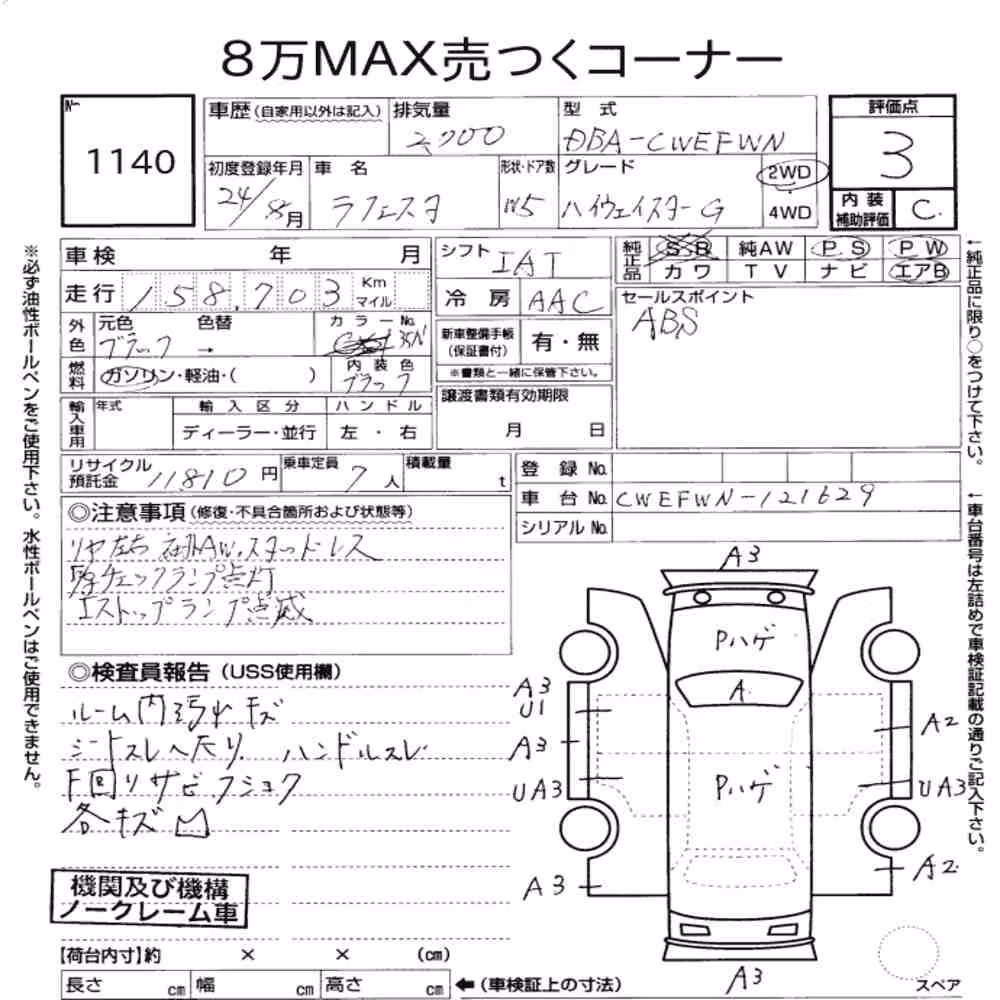 8万MAX売つくコーナー
№ 1140
車歴(自家用以外は記入) 排気量 2000 型式 DBA-CWEFWN
評価点 3
初度登録年月 24/8月 車名 ラフェスタ 形状・ドア数 W5 グレード ハイウェイスターG 2WD 4WD
内装補助評価 C
車検 年 月
走行 158,703 Km マイル
外色 元色 ブラック 色替 → カラーNo.
燃料 ガソリン・軽油・( ) 内装色 ブラック
輸入車用 年式 輸入区分 ディーラー・並行 ハンドル 左・右
シフト IAT
冷房 AAC
新車整備手帳(保証書付) 有・無
※書類と一緒に保管下さい。
譲渡書類有効期限
月 日
純正品 S R 純AW P.S P W
カワ TV ナビ エアB
セールスポイント
ABS
リサイクル預託金 11810円 乗車定員 7人 積載量 t
登録 No.
車台 No. CWEFWN-121629
シリアル No.
◎注意事項(修復・不具合箇所および状態等)
リヤ左右 社外AW.スタッドレス
チェックランプ点灯
エストップランプ点滅
◎検査員報告(USS使用欄)
ルーム内汚れキズ
シートスレヘたり. ハンドルスレ
F回りサビ フショク
各キズ凹
機関及び機構
ノークレーム車
【荷台内寸】約 × × (cm)
長さ cm 幅 cm 高さ cm ←(車検証上の寸法)
A3
Pハゲ
A
A3
U1
A3
UA3
A3
Pハゲ
A2
UA3
A2
A3
スペア
※必ず油性ボールペンをご使用下さい。水性ボールペンはご使用できません。
←純正品に限り○をつけて下さい。
←車台番号は左詰めで車検証記載の通りご記入下さい。